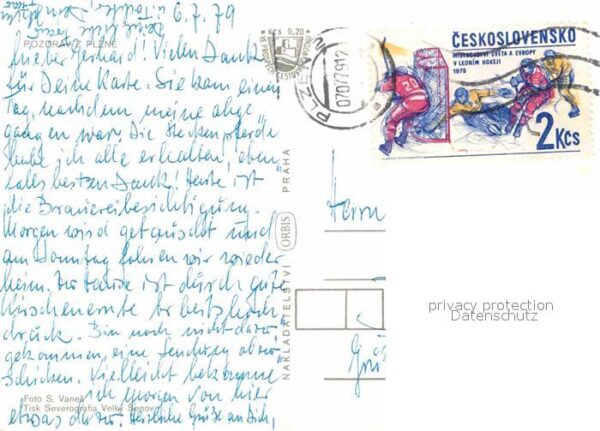 6.7.79
POZDRAV Z PLZNĚ
Lieber Gerhard! Vielen Dank
für Deine Karte. Sie kam einen
Tag, nachdem meine abge-
gangen war. Die Steckenpferde
habe ich alle erhalten, eben-
falls besten Dank! Heute ist
die Brauereibesichtigung.
Morgen wird getauscht und
am Sonntag fahren wir wieder
heim. Zu Hause ist durch gute
Kirschenernte
drück. Bin noch nicht dazu
gekommen, eine Sendung abzu-
schicken. Vielleicht bekomme
ich morgen von hier
etwas dazu. Herzliche Grüße an Dich,
Foto S. Vaněk
Tisk Severografia Velký Šenov
KČS 0,20
NAKLADATELSTVÍ ORBIS PRAHA
PLZEŇ
070779-12
ČESKOSLOVENSKO
MISTROVSTVÍ SVĚTA A EVROPY
V LEDNÍM HOKEJI
1978
20
2 Kčs
Herrn
privacy protection
Datenschutz